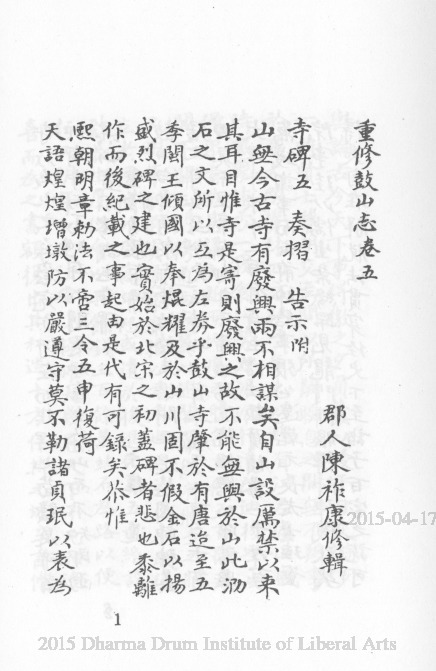 重修鼓山志卷五
郡人陳祚康修輯
寺碑五 奏摺 告示附
山無今古寺有廢興兩不相謀矣自山設厲禁以來
其耳目惟寺是寄則廢興之故不能無與於山此泐
石之文所以互為左券乎鼓山寺肇於有唐迨至五
季閩王傾國以奉焜耀及於山川固不假金石以揚
盛烈碑之建也實始於北宋之初蓋碑者悲也黍離
作而後紀載之事起由是代有可錄矣恭惟
熙朝明章勅法不啻三令五申復荷
天語煌煌增墩防以嚴遵守莫不勒諸貞珉以表為
1
2015-04-17
2015 Dharma Drum Institute of Liberal Arts